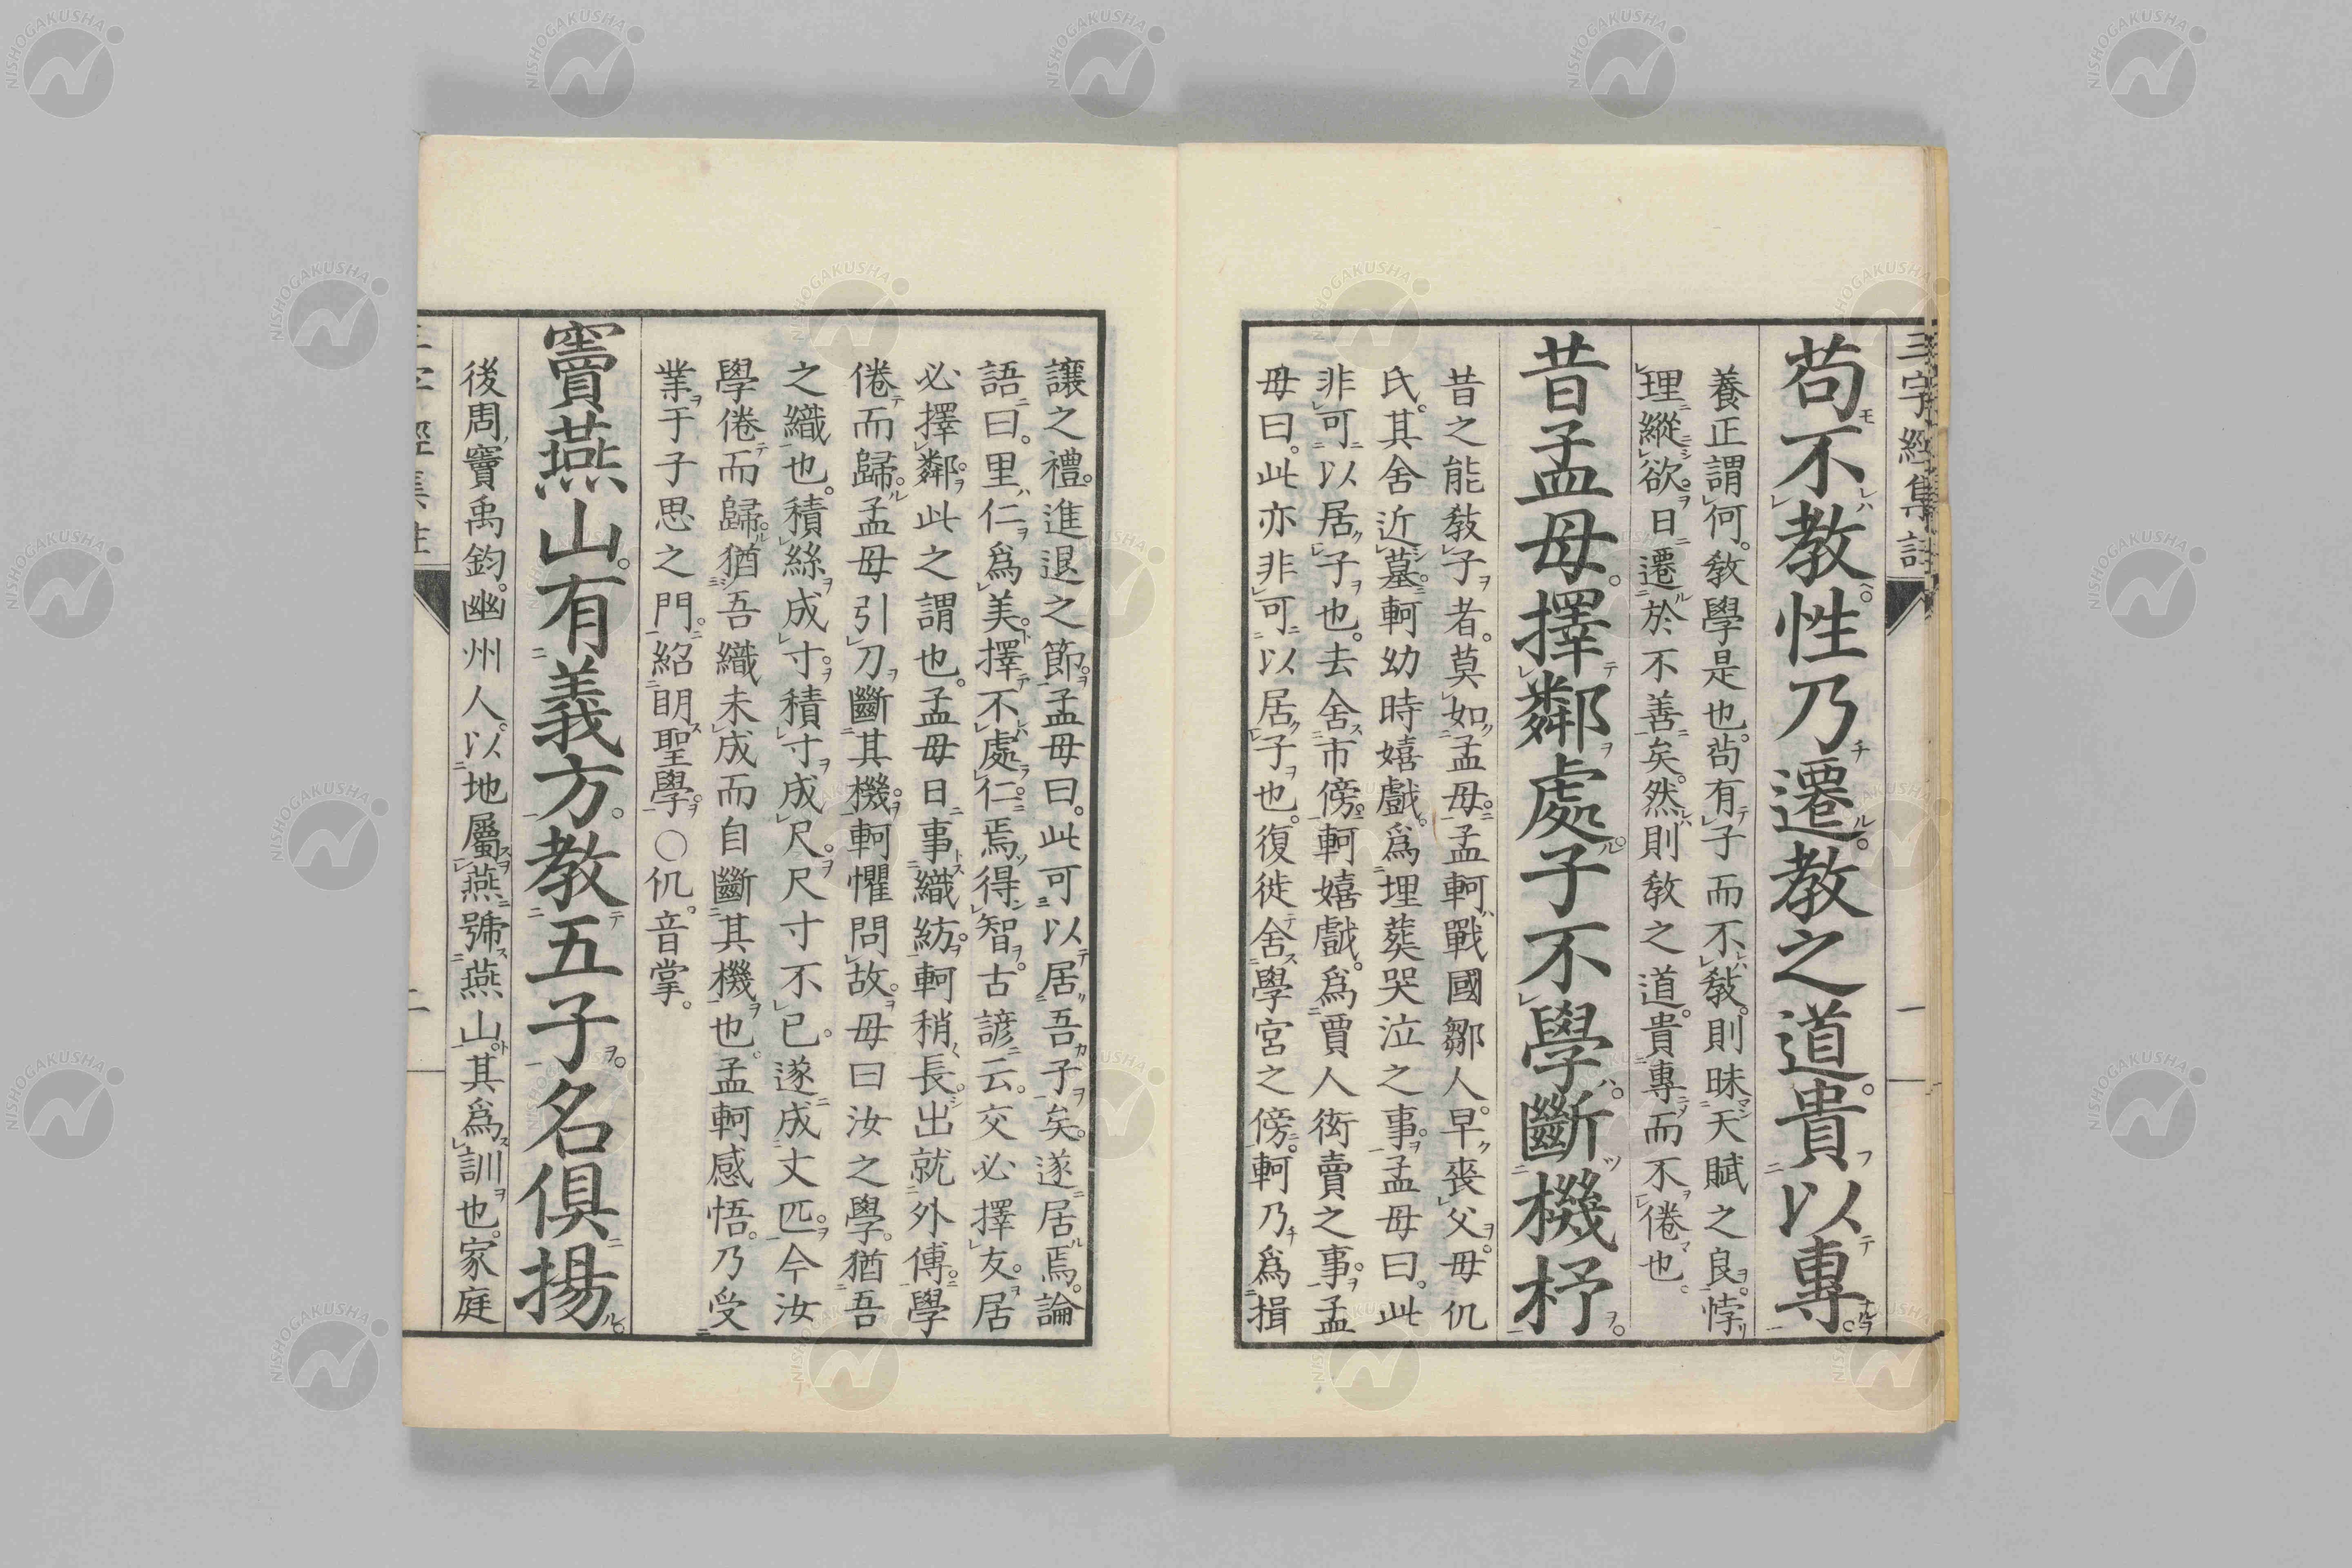 三字經集註
一
苟不教。性乃遷。教之道。貴以專。
養正謂何。敎學是也。茍有子而不敎。則昧天賦之良。悖
理縱欲。日遷於不善矣。然則敎之道。貴專而不倦也。
昔孟母。擇鄰處。子不學。斷機杼。
昔之能敎子者。莫如孟母。孟軻戰國鄒人。早喪父。母仉
氏。其舍近墓。軻幼時嬉戲。爲埋葬哭泣之事。孟母曰。此
非可以居子也。去舍市傍。軻嬉戲。爲賈人衒賣之事。孟
母曰。此亦非可以居子也。復徙舍學宮之傍。軻乃爲揖
讓之禮。進退之節。孟母曰。此可以居吾子矣。遂居焉。論
語曰。里仁爲美。擇不處仁。焉得智。古諺云。交必擇友。居
必擇鄰。此之謂也。孟母日事織紡。軻稍長。出就外傅。學
倦而歸。孟母引刀斷其機。軻懼問故。母曰汝之學。猶吾
之織也。積絲成寸。積寸成尺。尺寸不已。遂成丈匹。今汝
學倦而歸。猶吾織未成而自斷其機也。孟軻感悟。乃受
業于子思之門。紹明聖學。〇仉。音掌。
竇燕山。有義方。教五子。名俱揚。
後周竇禹鈞。幽州人。以地屬燕。號燕山。其爲訓也。家庭
二